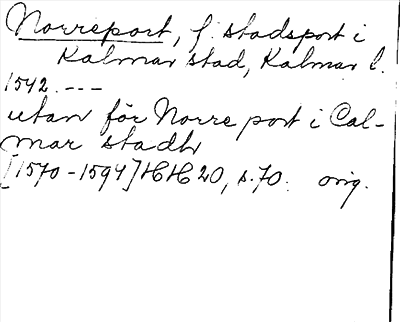 Norreport, f. stadsport i
Kalmar stad, Kalmar l.
1542. ---
utan för Norre port i Cal-
mar stadh
[1570-1594] HH 20, s. 70. orig.